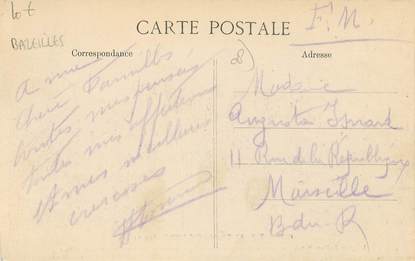 Lot
BAZEILLES
CARTE POSTALE
F. M.
Correspondance
Adresse
A ma
chère famille
toutes mes pensées
toutes mes affections
et mes meilleures
caresses
Madame
Augusta
11 Rue de la République
Marseille
B-du-R